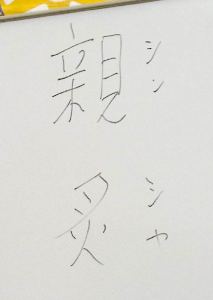 親炙
シンシャ